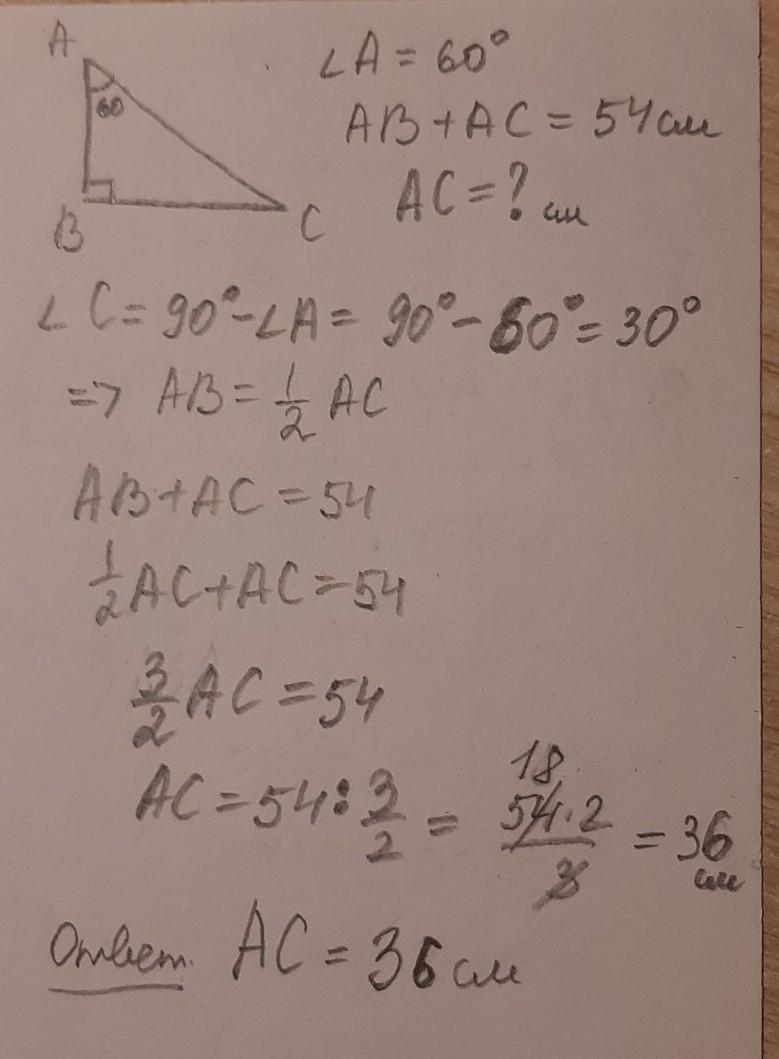 A
∠A = 60°
60
AB + AC = 54 см
B
C
AC = ? см
∠C = 90° - ∠A = 90° - 60° = 30°
=> AB = 1/2 AC
AB + AC = 54
1/2 AC + AC = 54
3/2 AC = 54
AC = 54 : 3/2 = 18 54·2/3 = 36 см
Ответ. AC = 36 см